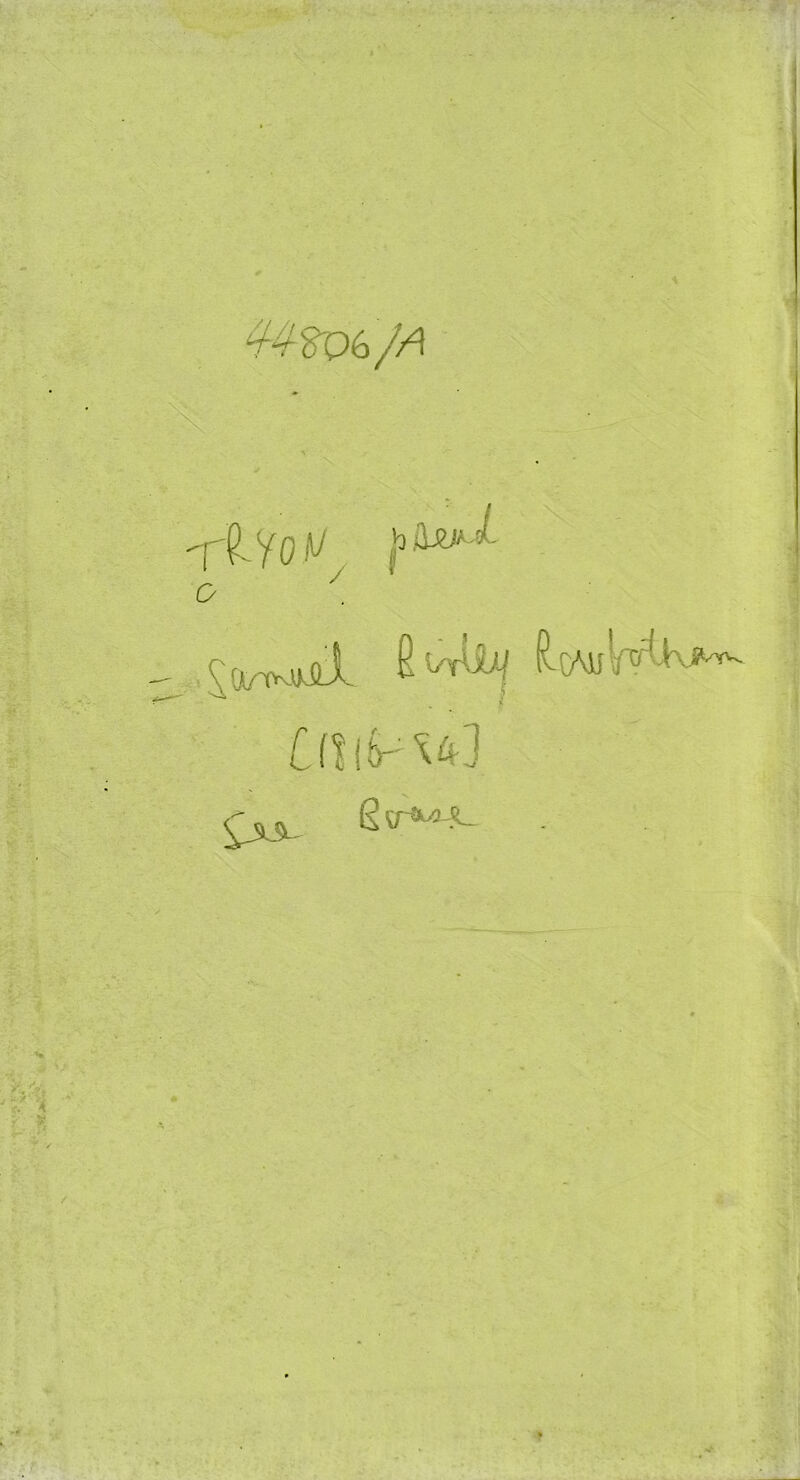 44806/A
TRYON, pseud
c
= Samuel Burley Rowbotham
[1816-84]
See Boase